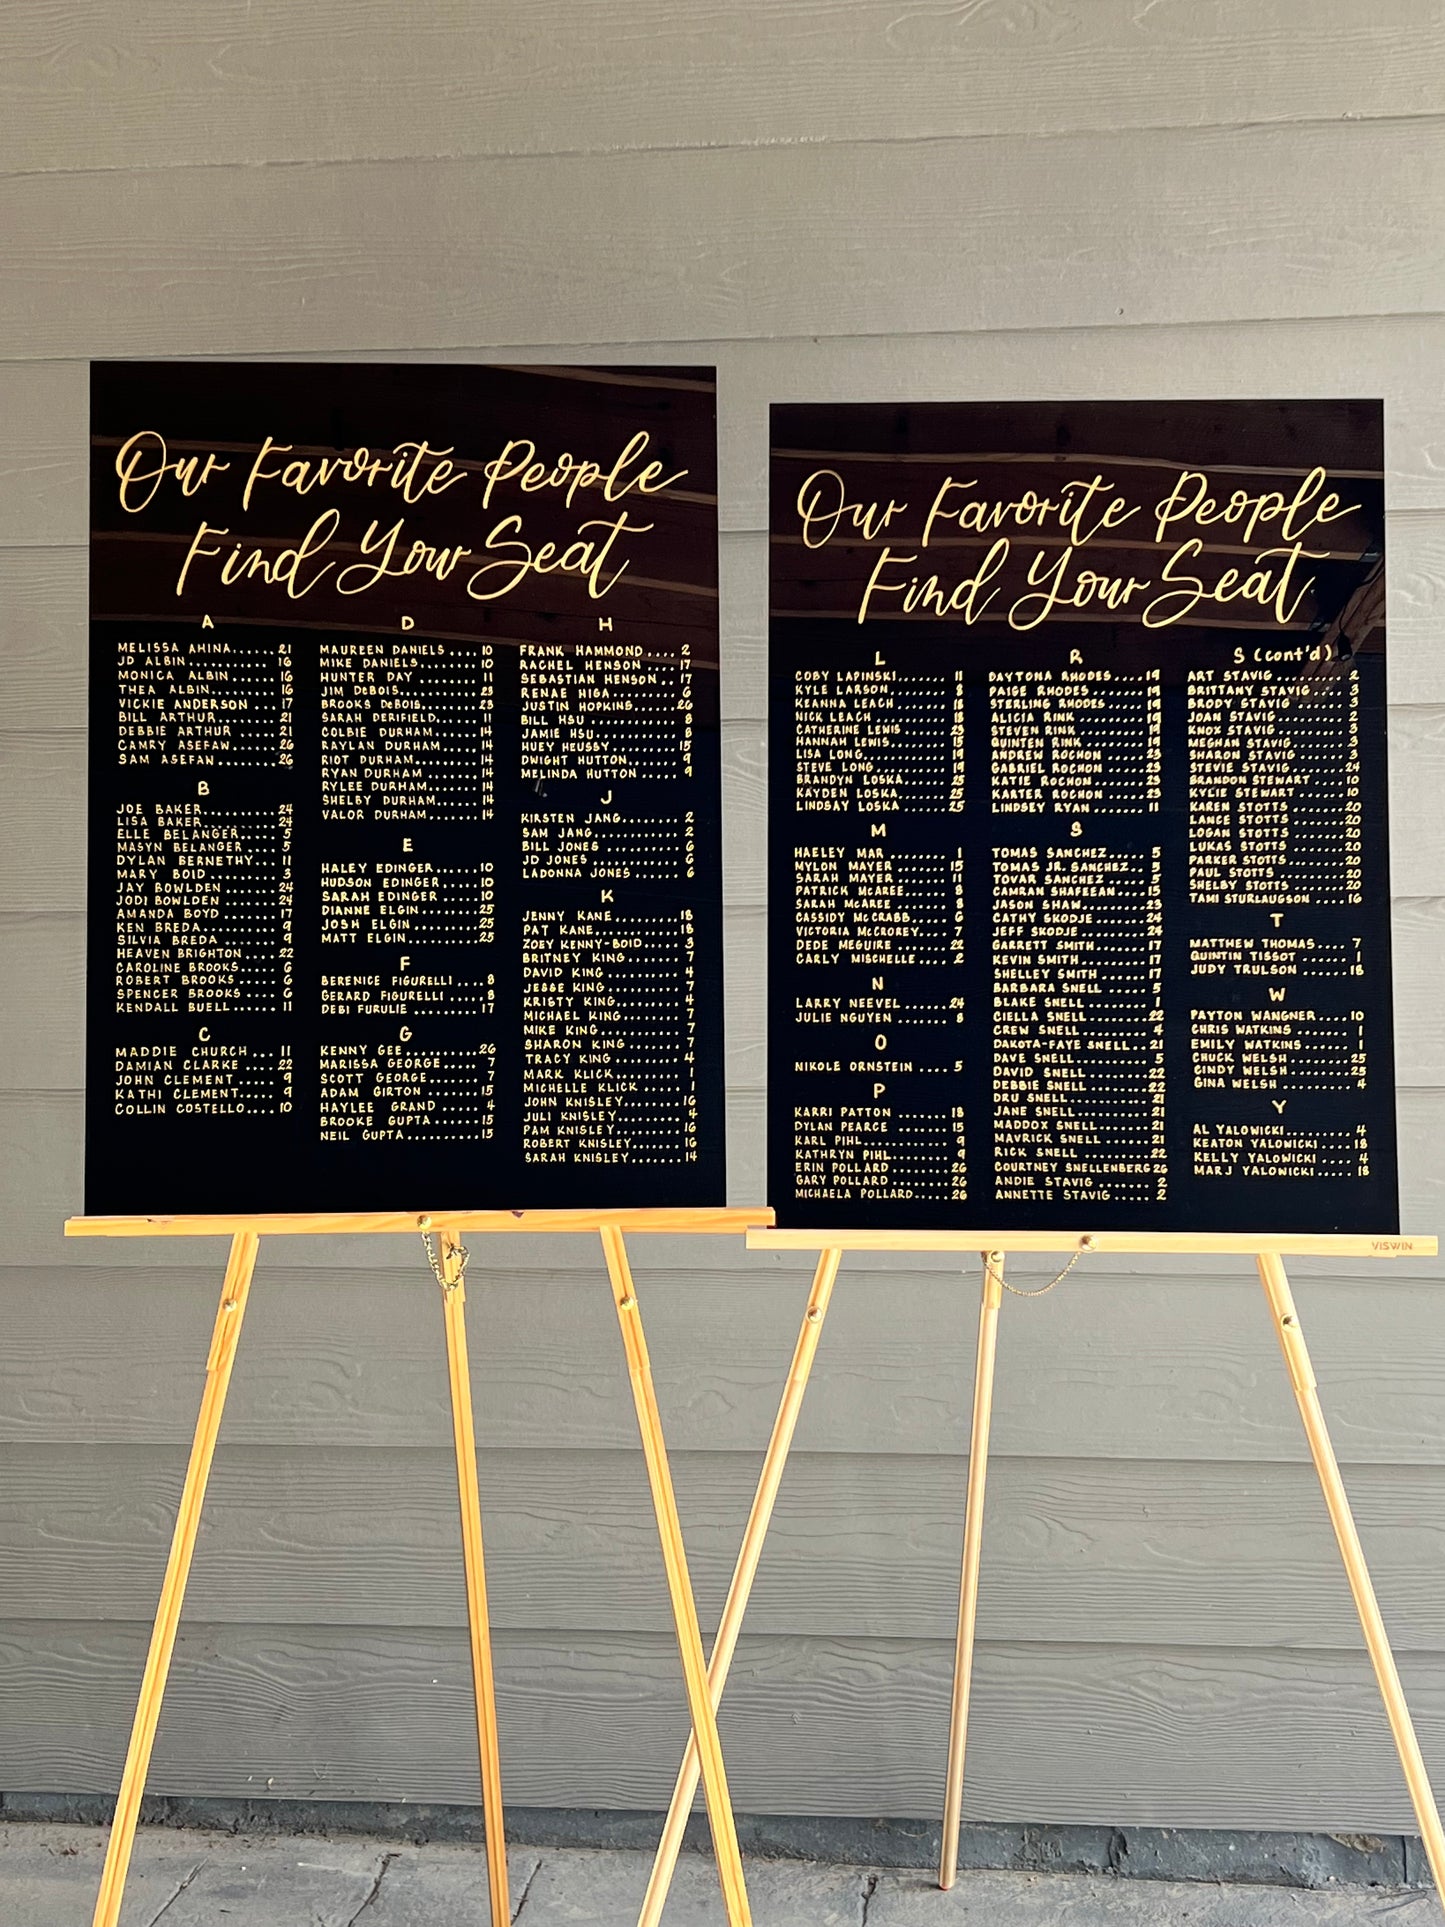 Our Favorite People
Find Your Seat
A
MELISSA AHINA...... 21
JD ALBIN........... 16
MONICA ALBIN....... 16
THEA ALBIN......... 16
VICKIE ANDERSON.... 17
BILL ARTHUR........ 21
DEBBIE ARTHUR...... 21
CAMRY ASEFAW....... 26
SAM ASEFAW......... 26
B
JOE BAKER.......... 24
LISA BAKER......... 24
ELLE BELANGER...... 5
MASYN BELANGER..... 5
DYLAN BERNETHY... 11
MARY BOID.......... 3
JAY BOWLDEN....... 24
JODI BOWLDEN...... 24
AMANDA BOYD....... 17
KEN BREDA.......... 9
SILVIA BREDA....... 9
HEAVEN BRIGHTON.... 22
CAROLINE BROOKS.... 6
ROBERT BROOKS..... 6
SPENCER BROOKS.... 6
KENDALL BUELL..... 11
C
MADDIE CHURCH... 11
DAMIAN CLARKE.... 22
JOHN CLEMENT..... 9
KATHI CLEMENT..... 9
COLLIN COSTELLO.... 10
D
MAUREEN DANIELS.... 10
MIKE DANIELS........ 10
HUNTER DAY........ 11
JIM DeBOIS.......... 23
BROOKS DeBOIS....... 23
SARAH DERIFIELD...... 11
COLBIE DURHAM...... 14
RAYLAN DURHAM..... 14
RIOT DURHAM........ 14
RYAN DURHAM....... 14
RYLEE DURHAM...... 14
SHELBY DURHAM...... 14
VALOR DURHAM....... 14
E
HALEY EDINGER...... 10
HUDSON EDINGER.... 10
SARAH EDINGER..... 10
DIANNE ELGIN....... 25
JOSH ELGIN......... 25
MATT ELGIN......... 25
F
BERENICE FIGURELLI.... 8
GERARD FIGURELLI..... 8
DEBI FURULIE....... 17
G
KENNY GEE.......... 26
MARISSA GEORGE..... 7
SCOTT GEORGE....... 7
ADAM GIRTON....... 15
HAYLEE GRAND..... 4
BROOKE GUPTA..... 15
NEIL GUPTA......... 15
H
FRANK HAMMOND.... 2
RACHEL HENSON.... 17
SEBASTIAN HENSON.. 17
RENAE HIGA........ 6
JUSTIN HOPKINS...... 26
BILL HSU........... 8
JAMIE HSU.......... 8
HUEY HEUSSY....... 15
DWIGHT HUTTON..... 9
MELINDA HUTTON..... 9
J
KIRSTEN JANG....... 2
SAM JANG.......... 2
BILL JONES......... 6
JD JONES........... 6
LADONNA JONES..... 6
K
JENNY KANE......... 18
PAT KANE........... 18
ZOEY KENNY-BOID.... 3
BRITNEY KING....... 7
DAVID KING......... 4
JESSE KING......... 7
KRISTY KING........ 4
MICHAEL KING....... 7
MIKE KING.......... 7
SHARON KING........ 7
TRACY KING......... 4
MARK KLICK........ 1
MICHELLE KLICK.... 1
JOHN KNISLEY....... 16
JULI KNISLEY....... 4
PAM KNISLEY........ 16
ROBERT KNISLEY..... 16
SARAH KNISLEY...... 14
Our Favorite People
Find Your Seat
L
COBY LAPINSKI....... 11
KYLE LARSON........ 8
KEANNA LEACH....... 18
NICK LEACH......... 18
CATHERINE LEWIS..... 23
HANNAH LEWIS....... 15
LISA LONG.......... 19
STEVE LONG......... 19
BRANDYN LOSKA...... 25
KAYDEN LOSKA....... 25
LINDSAY LOSKA...... 25
M
HAELEY MAR........ 1
MYLON MAYER...... 15
SARAH MAYER...... 11
PATRICK McAREE.... 8
SARAH McAREE...... 8
CASSIDY McCRABB... 6
VICTORIA McCROREY... 7
DEDE MEGUIRE...... 22
CARLY MISCHELLE... 2
N
LARRY NEEVEL....... 24
JULIE NGUYEN....... 8
O
NIKOLE ORNSTEIN.... 5
P
KARRI PATTON....... 18
DYLAN PEARCE....... 15
KARL PIHL.......... 9
KATHRYN PIHL....... 9
ERIN POLLARD....... 26
GARY POLLARD....... 26
MICHAELA POLLARD..... 26
R
DAYTONA RHODES..... 19
PAIGE RHODES....... 19
STERLING RHODES.... 19
ALICIA RINK........ 19
STEVEN RINK....... 19
QUINTEN RINK...... 19
ANDREW ROCHON.... 23
GABRIEL ROCHON.... 23
KATIE ROCHON..... 23
KARTER ROCHON.... 23
LINDSEY RYAN...... 11
S
TOMAS SANCHEZ..... 5
TOMAS JR. SANCHEZ.. 5
TOVAR SANCHEZ..... 5
CAMRAN SHAFEEAN... 15
JASON SHAW........ 23
CATHY SKODJE...... 24
JEFF SKODJE........ 24
GARRETT SMITH..... 17
KEVIN SMITH....... 17
SHELLEY SMITH..... 17
BARBARA SNELL..... 5
BLAKE SNELL....... 1
CIELLA SNELL....... 22
CREW SNELL........ 4
DAKOTA-FAYE SNELL.. 21
DAVE SNELL........ 5
DAVID SNELL....... 22
DEBBIE SNELL....... 22
DRU SNELL......... 21
JANE SNELL......... 21
MADDOX SNELL...... 21
MAVRICK SNELL..... 21
RICK SNELL........ 22
COURTNEY SNELLENBERG 26
ANDIE STAVIG...... 2
ANNETTE STAVIG..... 2
S (cont'd)
ART STAVIG......... 2
BRITTANY STAVIG.... 3
BRODY STAVIG...... 3
JOAN STAVIG....... 2
KNOX STAVIG....... 3
MEGHAN STAVIG..... 3
SHARON STAVIG..... 3
STEVIE STAVIG...... 24
BRANDON STEWART... 10
KYLIE STEWART..... 10
KAREN STOTTS...... 20
LANCE STOTTS...... 20
LOGAN STOTTS...... 20
LUKAS STOTTS...... 20
PARKER STOTTS..... 20
PAUL STOTTS....... 20
SHELBY STOTTS..... 20
TAMI STURLAUGSON.... 16
T
MATTHEW THOMAS.... 7
QUINTIN TISSOT..... 1
JUDY TRULSON...... 18
W
PAYTON WANGNER.... 10
CHRIS WATKINS...... 1
EMILY WATKINS..... 1
CHUCK WELSH...... 25
CINDY WELSH....... 25
GINA WELSH........ 4
Y
AL YALOWICKI....... 4
KEATON YALOWICKI.... 18
KELLY YALOWICKI.... 4
MARJ YALOWICKI..... 18
VISWIN